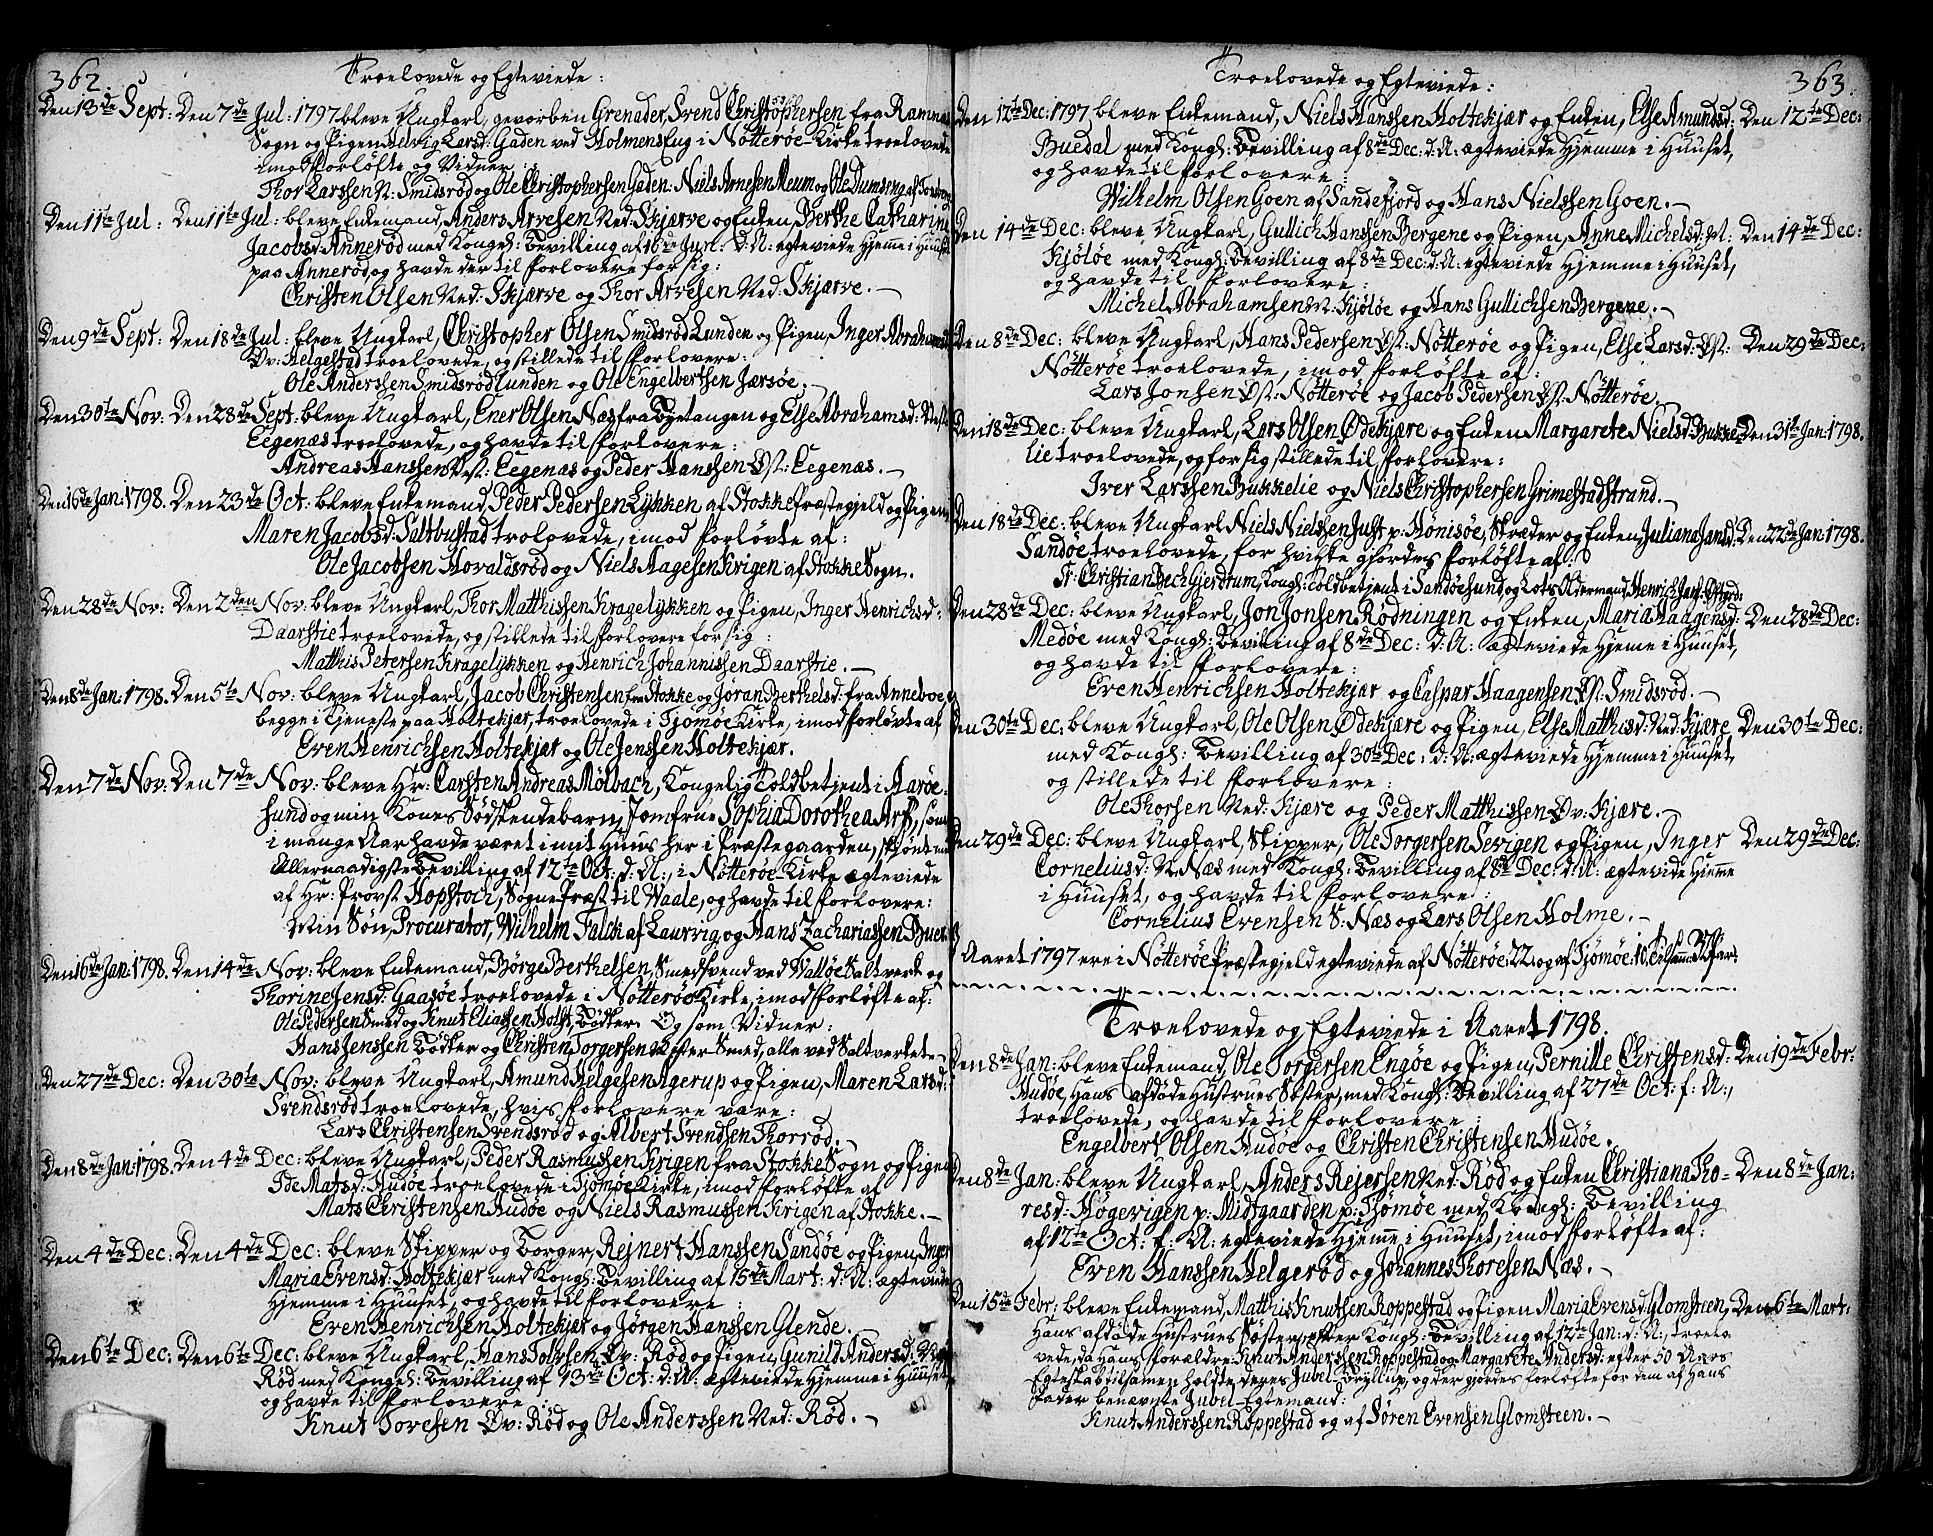 362. Troelovede og Egteviede:
Den 13de Sept: Den 7de Jul: 1797 bleve Ungkarl, geworben Grenader, Svend Christophersen fra Ramnæs
Sogn og Pigen Helvig Larsd: Gaden ved Holmens Eng i Nötteröe Kirke troelovede
imod Forlöfte og Vidner:
Thor Larssen N: Smidsröd og Ole Christophersen Gaden: Niels Arnesen Meum og Ole Dumseng af
Den 11te Jul: Den 11te Jul: bleve Enkemand, Anders Arvesen Ned: Skjærve og Enken, Berthe Catharine
Jacobsd: Anneröd med Kongel: Bevilling af 16de Jun: d: A: egteviede Hjemme i Huuset
paa Anneröd og havde der til Forlovere for sig:
Christen Olsen Ned: Skjærve og Thor Arvesen Ned: Skjærve. –
Den 9de Sept: Den 18de Jul: bleve Ungkarl, Christopher Olsen Smidsröd Lunden og Pigen, Inger Abrahamsd:
Öv: Helgestad troelovede, og stillede til Forlovere:
Ole Anderssen Smidsröd Lunden og Ole Engelbertsen Jærsöe. –
Den 30te Nov: Den 28de Sept: bleve Ungkarl, Ener Olsen Næs fra Tyetangen og Else Abrahamsd: Vest:
Eegenæs troelovede, og havde til Forlovere:
Andreas Hanssen Öst: Eegenæs og Peder Hanssen Öst: Eegenæs. –
Den 16de Jan: 1798. Den 23de Oct: bleve Enkemand, Peder Pedersen Lykken af Stokke Præstegjeld og Pigen
Maren Jacobsd: Saltbustad trolovede, imod Forlövte af:
Ole Jacobsen Hovaldsröd og Niels Aagesen Krigen af Stokke Sogn.
Den 28de Nov: Den 2den Nov: bleve Ungkarl, Thor Matthissen Kragelykken og Pigen, Inger Henrichsd:
Daarstie troelovede, og stillede til Forlovere for sig:
Matthis Petersen Kragelykken og Henrich Johannissen Daarstie. –
Den 8de Jan: 1798. Den 5te Nov: bleve Ungkarl, Jacob Christensen fra Stokke og Jöran Berthelsd: fra Anneboe
begge i Tjeneste paa Holtekjær, troelovede i Tjömöe Kirke, imod Forlövte af
Even Henrichsen Holtekjær og Ole Jenssen Holtekjær.
Den 7de Nov: Den 7de Nov: bleve Hr: Carsten Andreas Mölbach, Kongelig Toldbetjent i Aaröe-
sund og min Kones Södskendebarn, Jomfrue Sophia Dorothea Arp, som
i mange Aar havde været i mit Huus her i Præstegaarden, efter
Allernaadigste Bevilling af 12te Oct: d: A:, i Nötteröe Kirke egteviede
af Hr: Provst Hopstock, Sogne Præst til Waale, og havde til Forlovere:
Min Sön, Procurator, Wilhelm Falck af Laurvig og Hans Zachariassen Bue
Den 16de Jan: 1798. Den 14de Nov: bleve Enkemand, Börge Berthelsen, Smedsvend ved Wallöe Saltverk og
Thorine Jensd: Gaasöe troelovede i Nötteröe Kirke, imod Forlöfte af:
Ole Pedersen Smed og Knut Eliassen Holst, Bödker. Og som Vidner:
Hans Jenssen Bödker og Christen Torgersen Mester Smed, alle ved Saltverket –
Den 27de Dec: Den 30te Nov: bleve Ungkarl, Amund Helgesen Agerup og Pigen, Maren Larsd:
Svendsröd troelovede, hvis Forlovere vare:
Lars Christensen Svendsröd og Albert Svendsen Thorröd. –
Den 8de Jan: 1798. Den 4de Dec: bleve Ungkarl, Peder Rasmussen Krigen fra Stokke Sogn og Pigen
Ide Matsd: Hudöe troelovede i Tjömöe Kirke, imod Forlöfte af
Mats Christensen Hudöe og Niels Rasmussen Krigen af Stokke. –
Den 4de Dec: Den 4de Dec: bleve Skipper og Borger, Rejnert Hanssen Sandöe og Pigen, Inger
Maria Evensd: Holtekjær med Kongl: Bevilling af 15de Mart: d: A: ægteviede
Hjemme i Huuset, og havde til Forlovere:
Even Henrichsen Holtekjær og Jörgen Hanssen Glende. –
Den 6te Dec: Den 6te Dec: bleve Ungkarl, Hans Tolvsen Öv: Röd og Pigen, Gunild Andersd:
Röd med Kongel: Bevilling af 13de Oct: d: A: ægteviede Hjemme i Huuset,
og havde til Forlovere:
Knut Tovesen Öv: Röd og Ole Anderssen Ned: Röd. –
Troelovede og Egteviede: 363.
Den 12te Dec: 1797 bleve Enkemand, Niels Hanssen Holtekjær og Enken, Else Amundsd: Den 12te Dec:
Buedal med Kongl: Bevilling af 8de Dec: d: A: ægteviede Hjemme i Huuset,
og havde til Forlovere:
Wilhelm Olsen Goen af Sandefjord og Hans Nielssen Goen. –
Den 14de Dec: bleve Ungkarl, Gullich Hanssen Bergene og Pigen, Anne Michelsd: Den 14de Dec:
Kjölöe med Kongl: Bevilling af 8de Dec: d: A: egteviede Hjemme i Huuset,
og havde til Forlovere:
Michel Abrahamsen N: Kjölöe og Hans Gullichsen Bergene. –
Den 8de Dec: bleve Ungkarl, Hans Pedersen Öst: Nötteröe og Pigen, Else Larsd: Öst: Den 29de Dec:
Nötteröe troelovede, imod Forlöfte af:
Lars Jonsen Öst: Nötteröe og Jacob Pedersen Öst: Nötteröe. –
Den 18de Dec: bleve Ungkarl, Lars Olsen Ödekjære og Enken Margarete Nielsd: Bukke- Den 31te Jan: 1798.
lie troelovede, og for sig stillede til Forlovere:
Iver Larssen Bukkelie og Niels Christophersen Grimestad strand. –
Den 18de Dec: bleve Ungkarl Niels Nielssen Just p: Hönisöe, Skræder og Enken, Juliana Jansd: Den 22de Jan: 1798.
Sandöe troelovede, for hvilke gjordes Forlöfte af:
Sr: Christian Bech Gierdrum, Kongl: Toldbetjent i Sandösund og Lots Oldermand, Henrich Jans:
Den 28de Dec: bleve Ungkarl, Jon Jonsen Rödningen og Enken, Maria Haagensd: Den 28de Dec:
Medöe med Kongl: Bevilling af 8de Dec: d: A: ægteviede Hjeme i Huuset,
og havde til Forlovere:
Even Henrichsen Holtekjær og Caspar Haagensen Öst: Smidsröd. –
Den 30te Dec: bleve Ungkarl, Ole Olsen Ödekjære og Pigen, Else Matthisd: Ned: Kjære Den 30te Dec:
med Kongl: Bevilling af 30te Dec: d: A: ægteviede Hjemme i Huuset,
og stillede til Forlovere:
Ole Thorsen Ned: Kjære og Peder Matthissen Öv: Kjære. –
Den 29de Dec: bleve Ungkarl, Skipper, Ole Torgersen Sevigen og Pigen, Inger Den 29de Dec:
Cornelius d: N: Næs med Kongl: Bevilling af 8de Dec: d: A: ægtevide Hjemme
i Huuset, og havde til Forlovere:
Cornelius Evensen S: Næs og Lars Olsen Holme. –
I Aaret 1797 ere i Nötteröe Præstegjeld egteviede af Nötteröe: 22 og af Tjömöe: 10, tilsamm: 32 Par:
Troelovede og Egteviede i Aaret 1798.
Den 8de Jan: bleve Enkemand, Ole Torgersen Engöe og Pigen, Pernille Christensd: Den 19de Febr:
Hudöe, Hans afdöde Hustrues Söster, med Kongl: Bevilling af 27de Oct: f: A:,
troelovede, og havde til Forlovere:
Engelbert Olsen Hudöe og Christen Christensen Hudöe.
Den 8de Jan: bleve Ungkarl, Anders Rejersen Ned: Röd og Enken Christiana Tho= Den 8de Jan:
resd: Högevigen p: Midtgaarden p: Tjömöe med Kongl: Bevilling
af 12te Oct: f: A: egteviede Hjeme i Huuset, imod Forlöfte af:
Even Hanssen Helgeröd og Johannes Thoresen Næs. –
Den 15de Febr: bleve Enkemand, Matthis Knutsen Roppestad og Pigen Maria Evensd: Glomsteen, Den 6te Mart:
Hans afdöde Hustrues Söster, efter Kongl: Bevilling af 12te Jan: d: A:, troelo
vede, da Hans Forældre: Knut Anderssen Roppestad og Margarete Andersd: efter 50 Aars
Egteskab tilsamen holdte deres Jubel-Bryllup, og der gjordes Forlöfte for dem af Hans
Fader benævnte Jubel-Egtemand:
Knut Anderssen Roppestad og af Sören Evensen Glomsteen. –